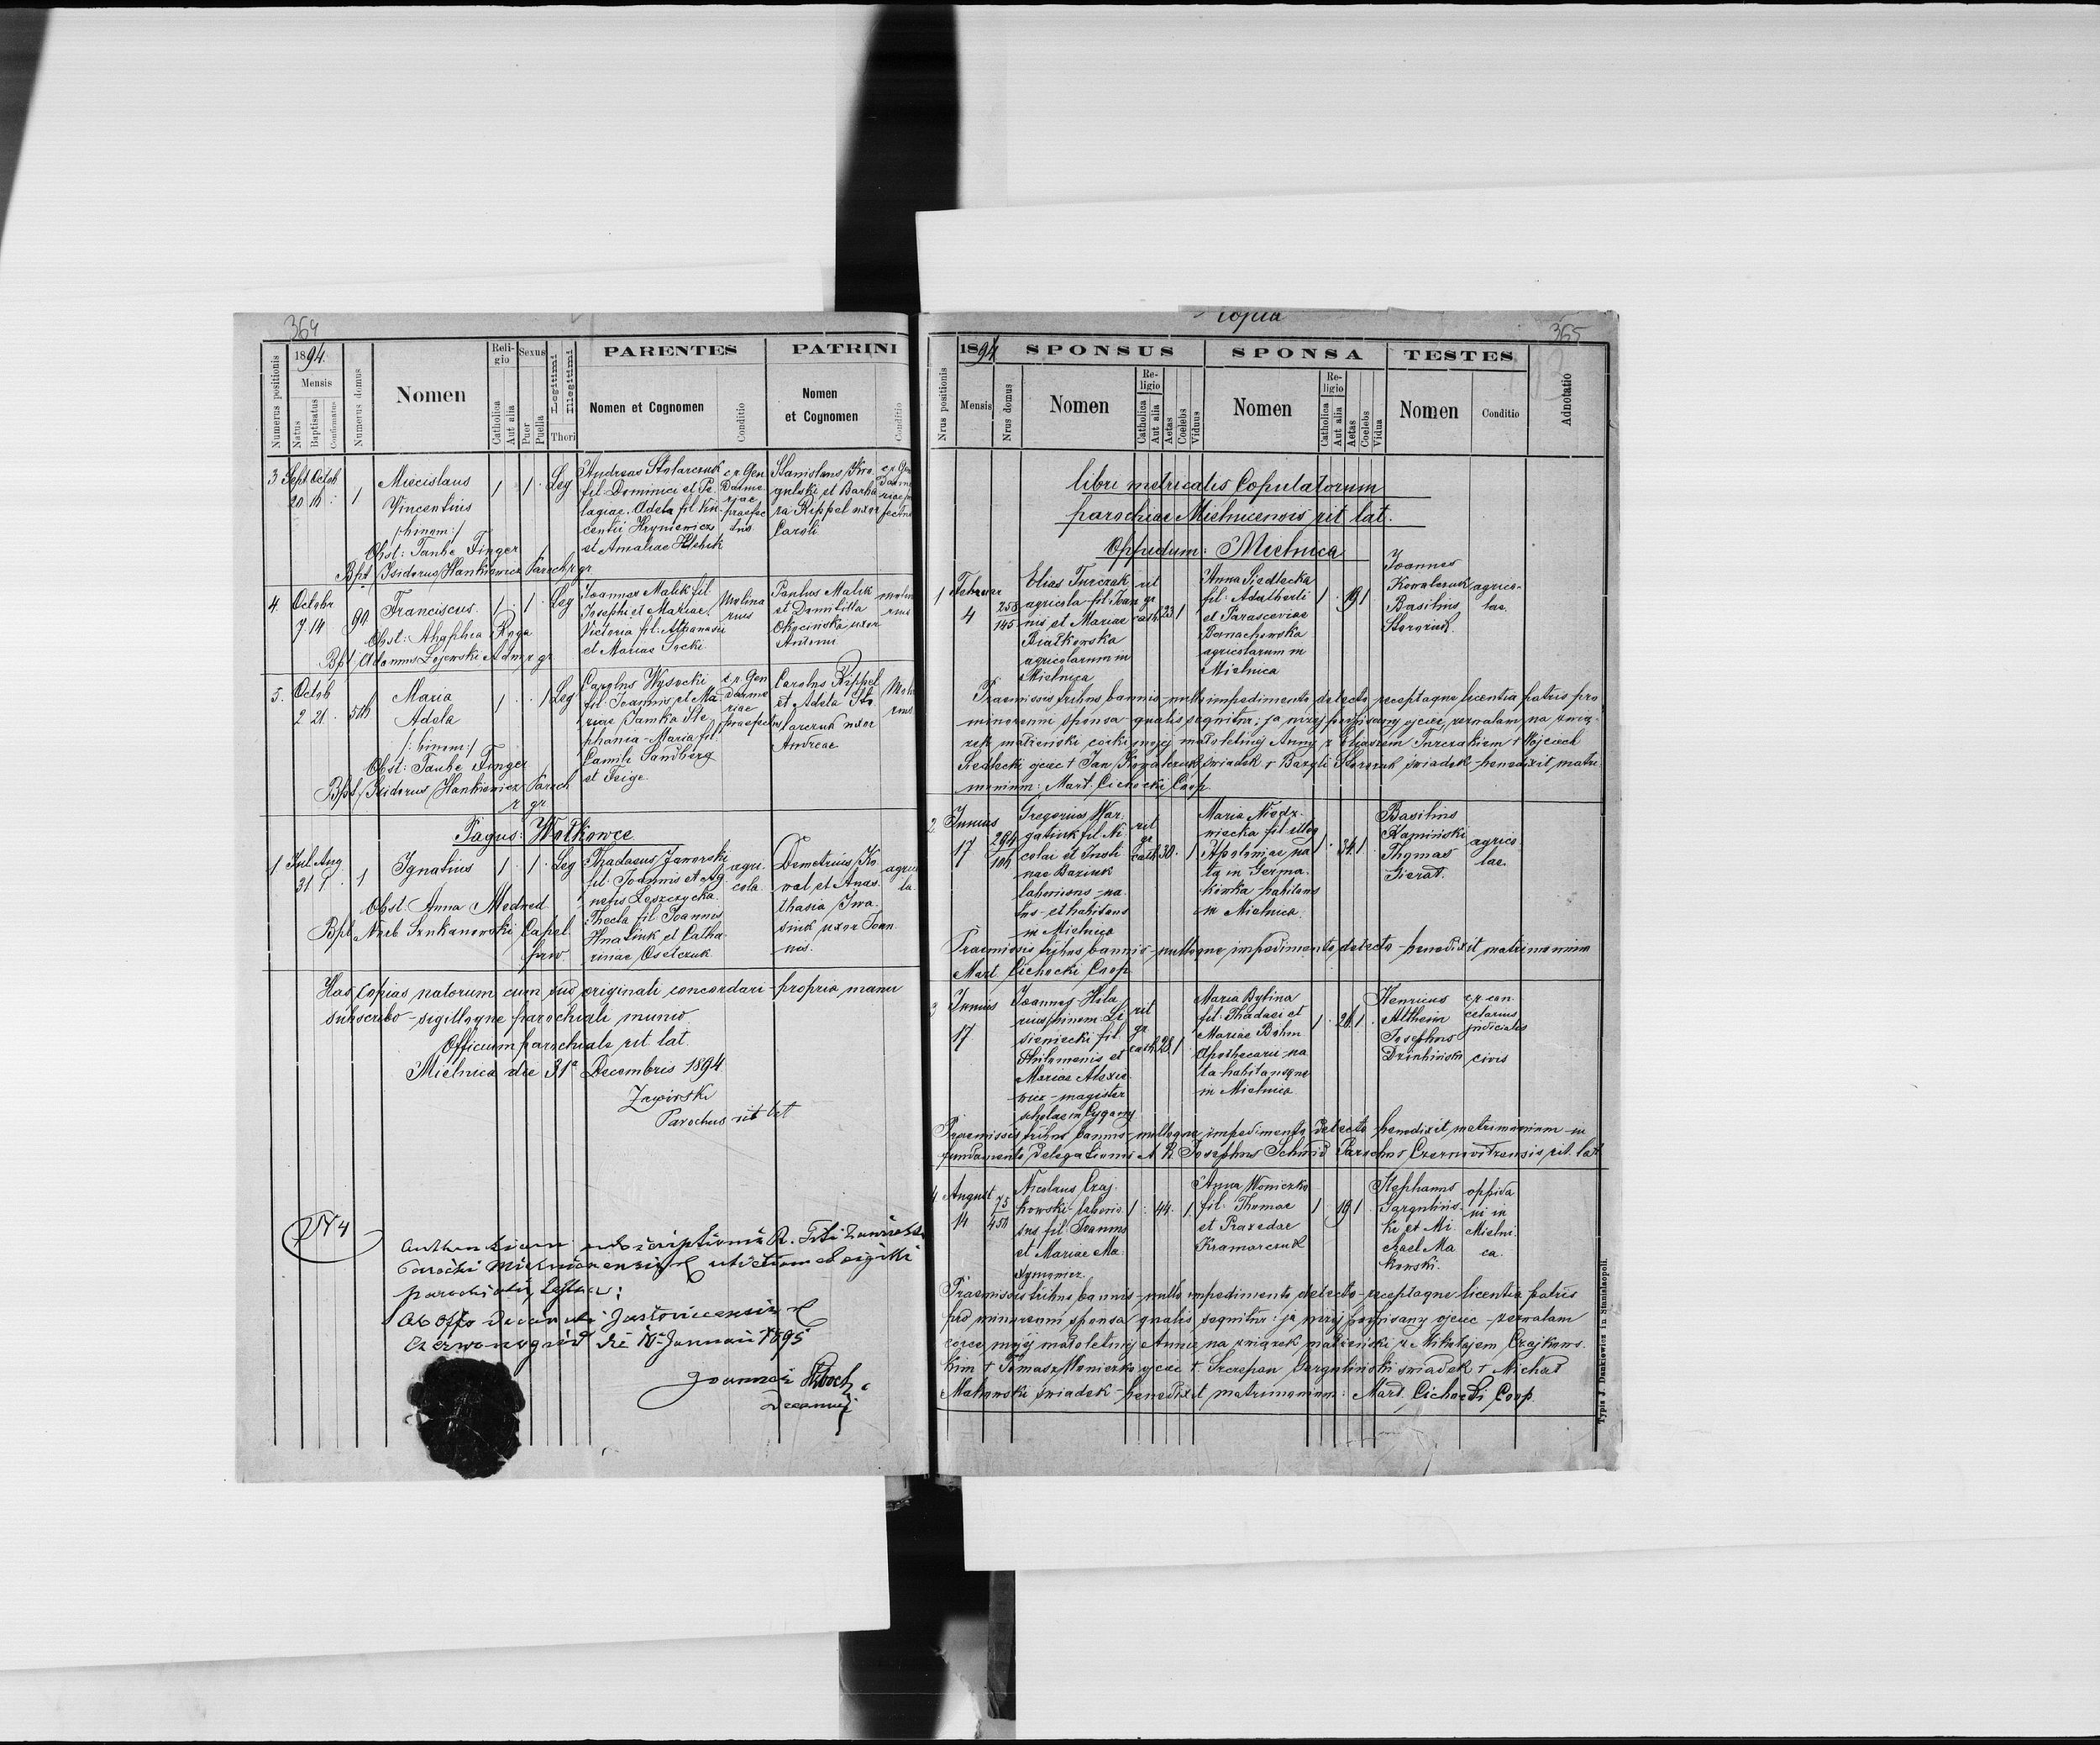 364
1894.
Numerus positionis
Mensis
Natus
Baptisatus
Confirmatus
Numerus domus
Nomen
Religio
Catholica
Aut alia
Sexus
Puer
Puella
Legitimi
Illegitimi
Thori
PARENTES
Nomen et Cognomen
Conditio
PATRINI
Nomen
et Cognomen
Conditio
3 Sept Octob
20
1
Miecislaus
Vincentius
/:binom:/
1 1 Leg
Andreas Stolarczuk
fil. Dominici et Pe-
lagiae. Adela fil. Vin-
centii Hryniewicz
et Amaliae
c.r. Gen
darme
riae
praefec
tus
Stanislaus
et Barba
ra Rippel uxor
Caroli
Obst: Taube Finger
Bpt Isidorus Hankiewicz Paroch r. gr
4. Octobr
7 14
Franciscus
1 1 Leg
Joannes Malik fil
Josephi et Mariae.
Victoria fil. Athanasii
et Mariae
Molina
rius
Paulus Malik
et Domitilla
uxor
Antonii
Obst: Ahaphia
Bpt Adamus Łojewski Adm. r. gr
5. Octob
2 21
Maria
Adela
/:binom:/
1 1 Leg
Carolus Wysocki
fil. Joannis et Ma-
riae Jamka Ste-
phania-Maria fil.
Camili Sandberg
et Feige
c.r. Gen
darme
riae
praefectus
Carolus Rippel
et Adela Sto-
larczuk uxor
Andreae
Obst: Taube Finger
Bpt Isidorus Hankiewicz Paroch
r. gr
Pagus: Wołkowce
1 Jul. Aug
31 1 1
Ignatius
1 1 Leg
Thadaeus Jaworski
fil. Joannis et Ag-
netis Leszczycka.
Thecla fil Joannis
Hnatiuk et Catha-
rinae Oselczuk
agri-
cola
Demetrius Ko-
wal et Anas-
thasia Iwa-
siuk uxor Joan-
nis.
agrico
la
Obst. Anna Medwed
Bpt Norb. Capel
Has Copias natorum cum suo originali concordari - propria manu
subscribo - sigilloque parochiali munio
Officium parochiale rit. lat.
Mielnica die 31ª Decembris 1894
Zawirski
Parochus rit lat
N 4
Authenticam subscriptionis R. Titi Zawirski
Parochi Mielnicensis
parochialis, testor:
Ab offo Decanali Jastovicensis
Czerwonogród die Januarii 1895
Joannes
Decanus
Copia
365
Nrus positionis
1894
Mensis
Nrus domus
SPONSUS
Nomen
Religio
Catholica
Aut alia
Aetas
Coelebs
Viduus
SPONSA
Nomen
Religio
Catholica
Aut alia
Aetas
Coelebs
Vidua
TESTES
Nomen
Conditio
Adnotatio
libri metricalis Copulatorum
parochiae Mielnicensis rit. lat.
Oppidum: Mielnica
1 Februar
4
258
145
Elias Turczak
agricola fil. Joan-
nis et Mariae
Białkowska
agricolarum in
Mielnica
rit
gr
cath. 23 1
Anna Siedlecka
fil: Adalberti
et Parasceviae
Bernachowska
agricolarum in
Mielnica
1 19 1
Joannes
Kowalczuk
Basilius
agrico-
lae.
Praemissis tribus bannis - nullo impedimento detecto receptaque licentia patris pro
minorenni sponsa - qualis sequitur: ja niżej podpisany ojciec, zezwalam na zwią-
zek małżeński córki mojej małoletniej Anny z Eliaszem Turczakiem + Wojciech
Siedlecki ojciec + Jan Kowalczuk świadek + Bazyli świadek - benedixit matri-
monium: Mart. Cichocki Coop.
2 Junius
17
294
Gregorius War-
gatiuk fil. Ni-
colai et Justi-
nae Baziuk
laboriosus - na-
tus et habitans
in Mielnica
rit
gr
cath 30. 1
Maria
fil. illeg
Apoloniae na-
ta in Germa-
kówka habitans
in Mielnica
1 34 1
Basilius
Kamiński
Thomas
Sierat.
agrico-
lae.
Praemissis tribus bannis - nulloque impedimento detecto - benedixit matrimonium
Mart. Cichocki Coop.
3 Junius
17
Joannes Hila-
rius binom. Li-
sieniecki fil.
Philomenis et
Mariae Alexie-
wicz - magister
scholae in Cygany
rit
gr
cath. 28 1
Maria Bylina
fil. Thadaei et
Mariae Böhm
Apothecarii - na-
ta habitansque
in Mielnica
1 26 1
Henricus
Altheim
Josephus
c.r. can-
cetarius
judicialis
civis
Praemissis tribus bannis - nulloque impedimento detecto benedixit matrimonium - in
fundamento delegationis A. R. Josephus Schmid Parochus Czernovitzensis rit. lat.
4 August
14
75
450
Nicolaus Czaj-
kowski - laborio-
sus fil Joannis
et Mariae Ma-
xymowicz
1 44. 1
Anna Woniczko
fil. Thomae
et Praxedae
Kramarczuk
1 19 1
Stephanus
Jargulins-
ki et Mi-
chael Ma-
kowski.
oppida
ni in
Mielni-
ca.
Praemissis tribus bannis - nullo impedimento detecto - receptaque licentia patris
pro minorenni sponsa - qualis sequitur: ja niżej podpisany ojciec - zezwalam
córce mojej małoletniej Annie na związek małżeński z Mikołajem Czajkows-
kim + Tomasz Woniczko ojciec + Szczepan Jarguliński świadek + Michał
Makowski świadek - benedixit matrimonium: Mart. Cichocki Coop.
Typis J. Dankiewicz in Stanislaopoli.